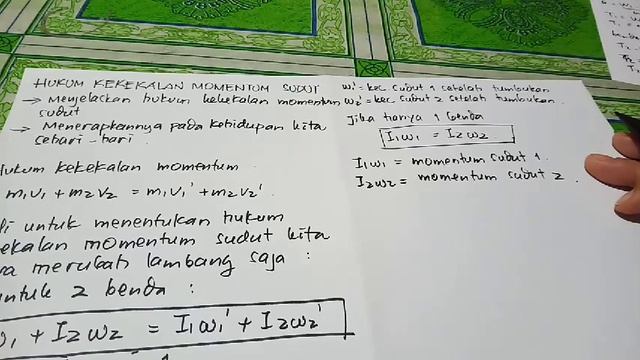 HUKUM KEKEKALAN MOMENTUM SUDUT
→ Menjelaskan hukum kekekalan momentum
sudut
→ Menerapkannya pada kehidupan kita
sehari-hari.
Hukum kekekalan momentum
m₁v₁ + m₂v₂ = m₁v₁' + m₂v₂'.
untuk menentukan hukum
kekalan momentum sudut kita
merubah lambang saja :
untuk 2 benda :
ω₁ + I₂ω₂ = I₁ω₁' + I₂ω₂'
ω₁' = kec. sudut 1 setelah tumbukan
ω₂' = kec. sudut 2 setelah tumbukan.
Jika hanya 1 benda
I₁ω₁ = I₂ω₂
I₁ω₁ = momentum sudut 1.
I₂ω₂ = momentum sudut 2.